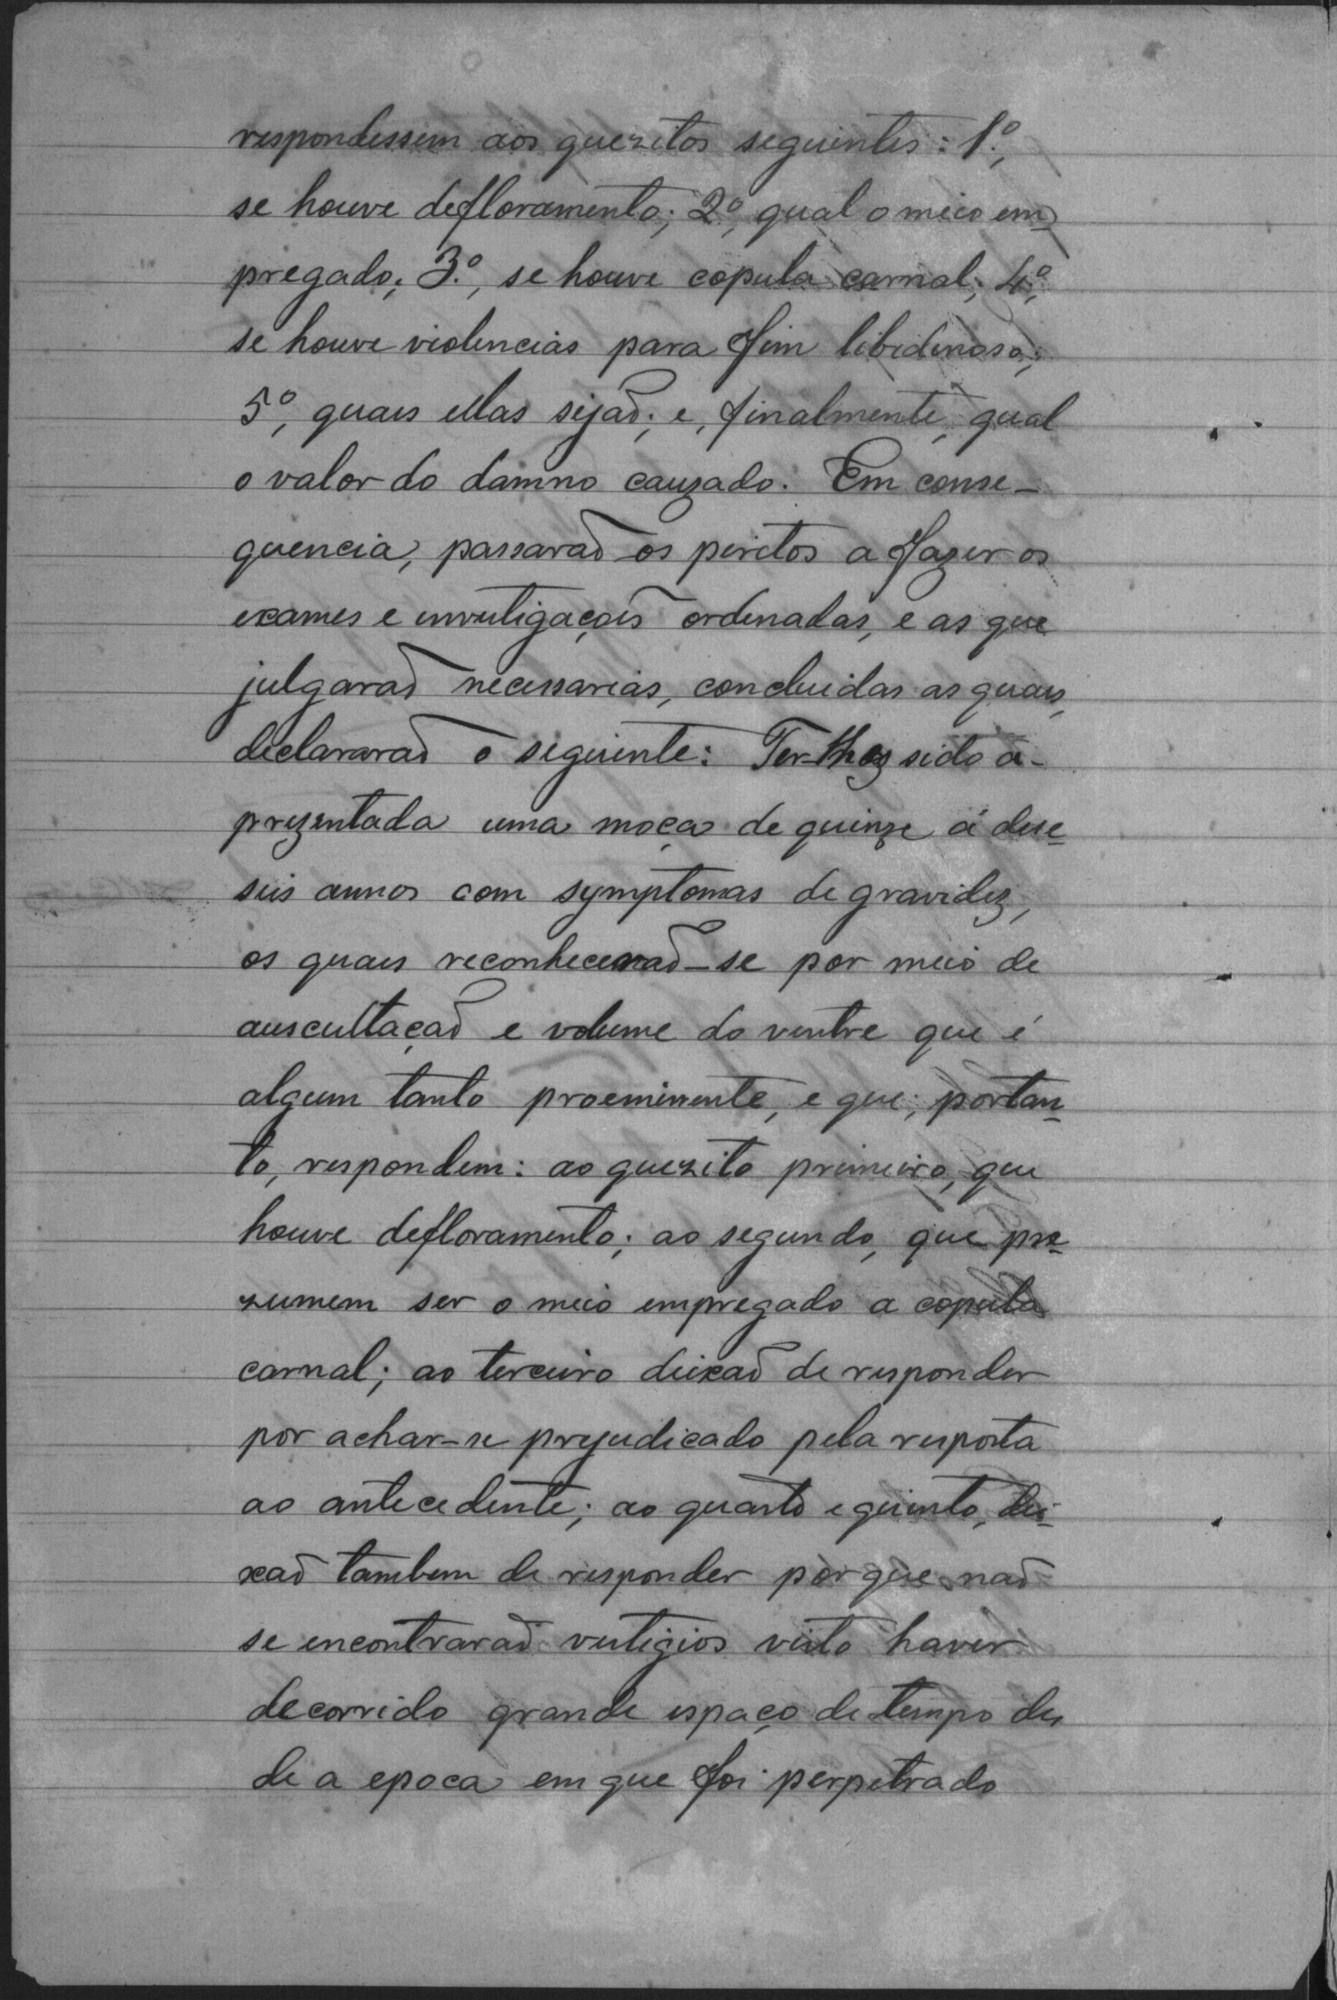 respondessem aos quezitos seguintes: 1º,
se houve defloramento; 2º, qual o meio em-
pregado; 3º, se houve copula carnal; 4º,
se houve violencias para fim libidinoso;
5º, quaes ellas sejaõ; e, finalmente, qual
o valor do damno cauzado. Em conse-
quencia, passaraõ os peritos a fazer os
exames e investigaçoẽs ordenadas, e as que
julgaraõ necessarias, concluidas as quaes,
declararaõ o seguinte: Ter-lhes sido a-
prezentada uma moça de quinze á dese-
seis annos com symptomas de gravidez,
os quaes reconheceraõ-se por meio de
auscultaçaõ e volume do ventre que é
algum tanto proeminente, e que, portan-
to, respondem: ao quezito primeiro, que
houve defloramento; ao segundo, que pre-
zumem ser o meio empregado a copula
carnal; ao terceiro deixaõ de responder
por achar-se prejudicado pela resposta
ao antecedente; ao quarto e quinto, dei-
xaõ tambem de responder porque naõ
se encontraraõ vestigios visto haver
decorrido grande espaço de tempo des
de a epoca em que foi perpetrado